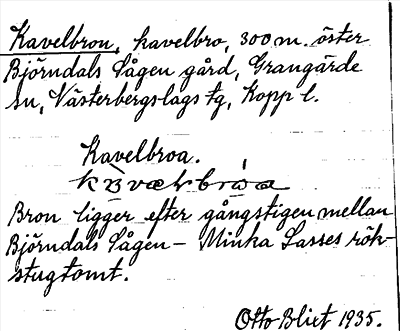 Kavelbron, kavelbro, 300 m. öster
Björndals Sågen gård, Grangärde
sn, Västerbergslags tg, Kopp l.
Kavelbroa.
Bron ligger efter gångstigen mellan
Björndals Sågen – Minka Lasses rök-
stugtomt.
Otto Blixt 1935.